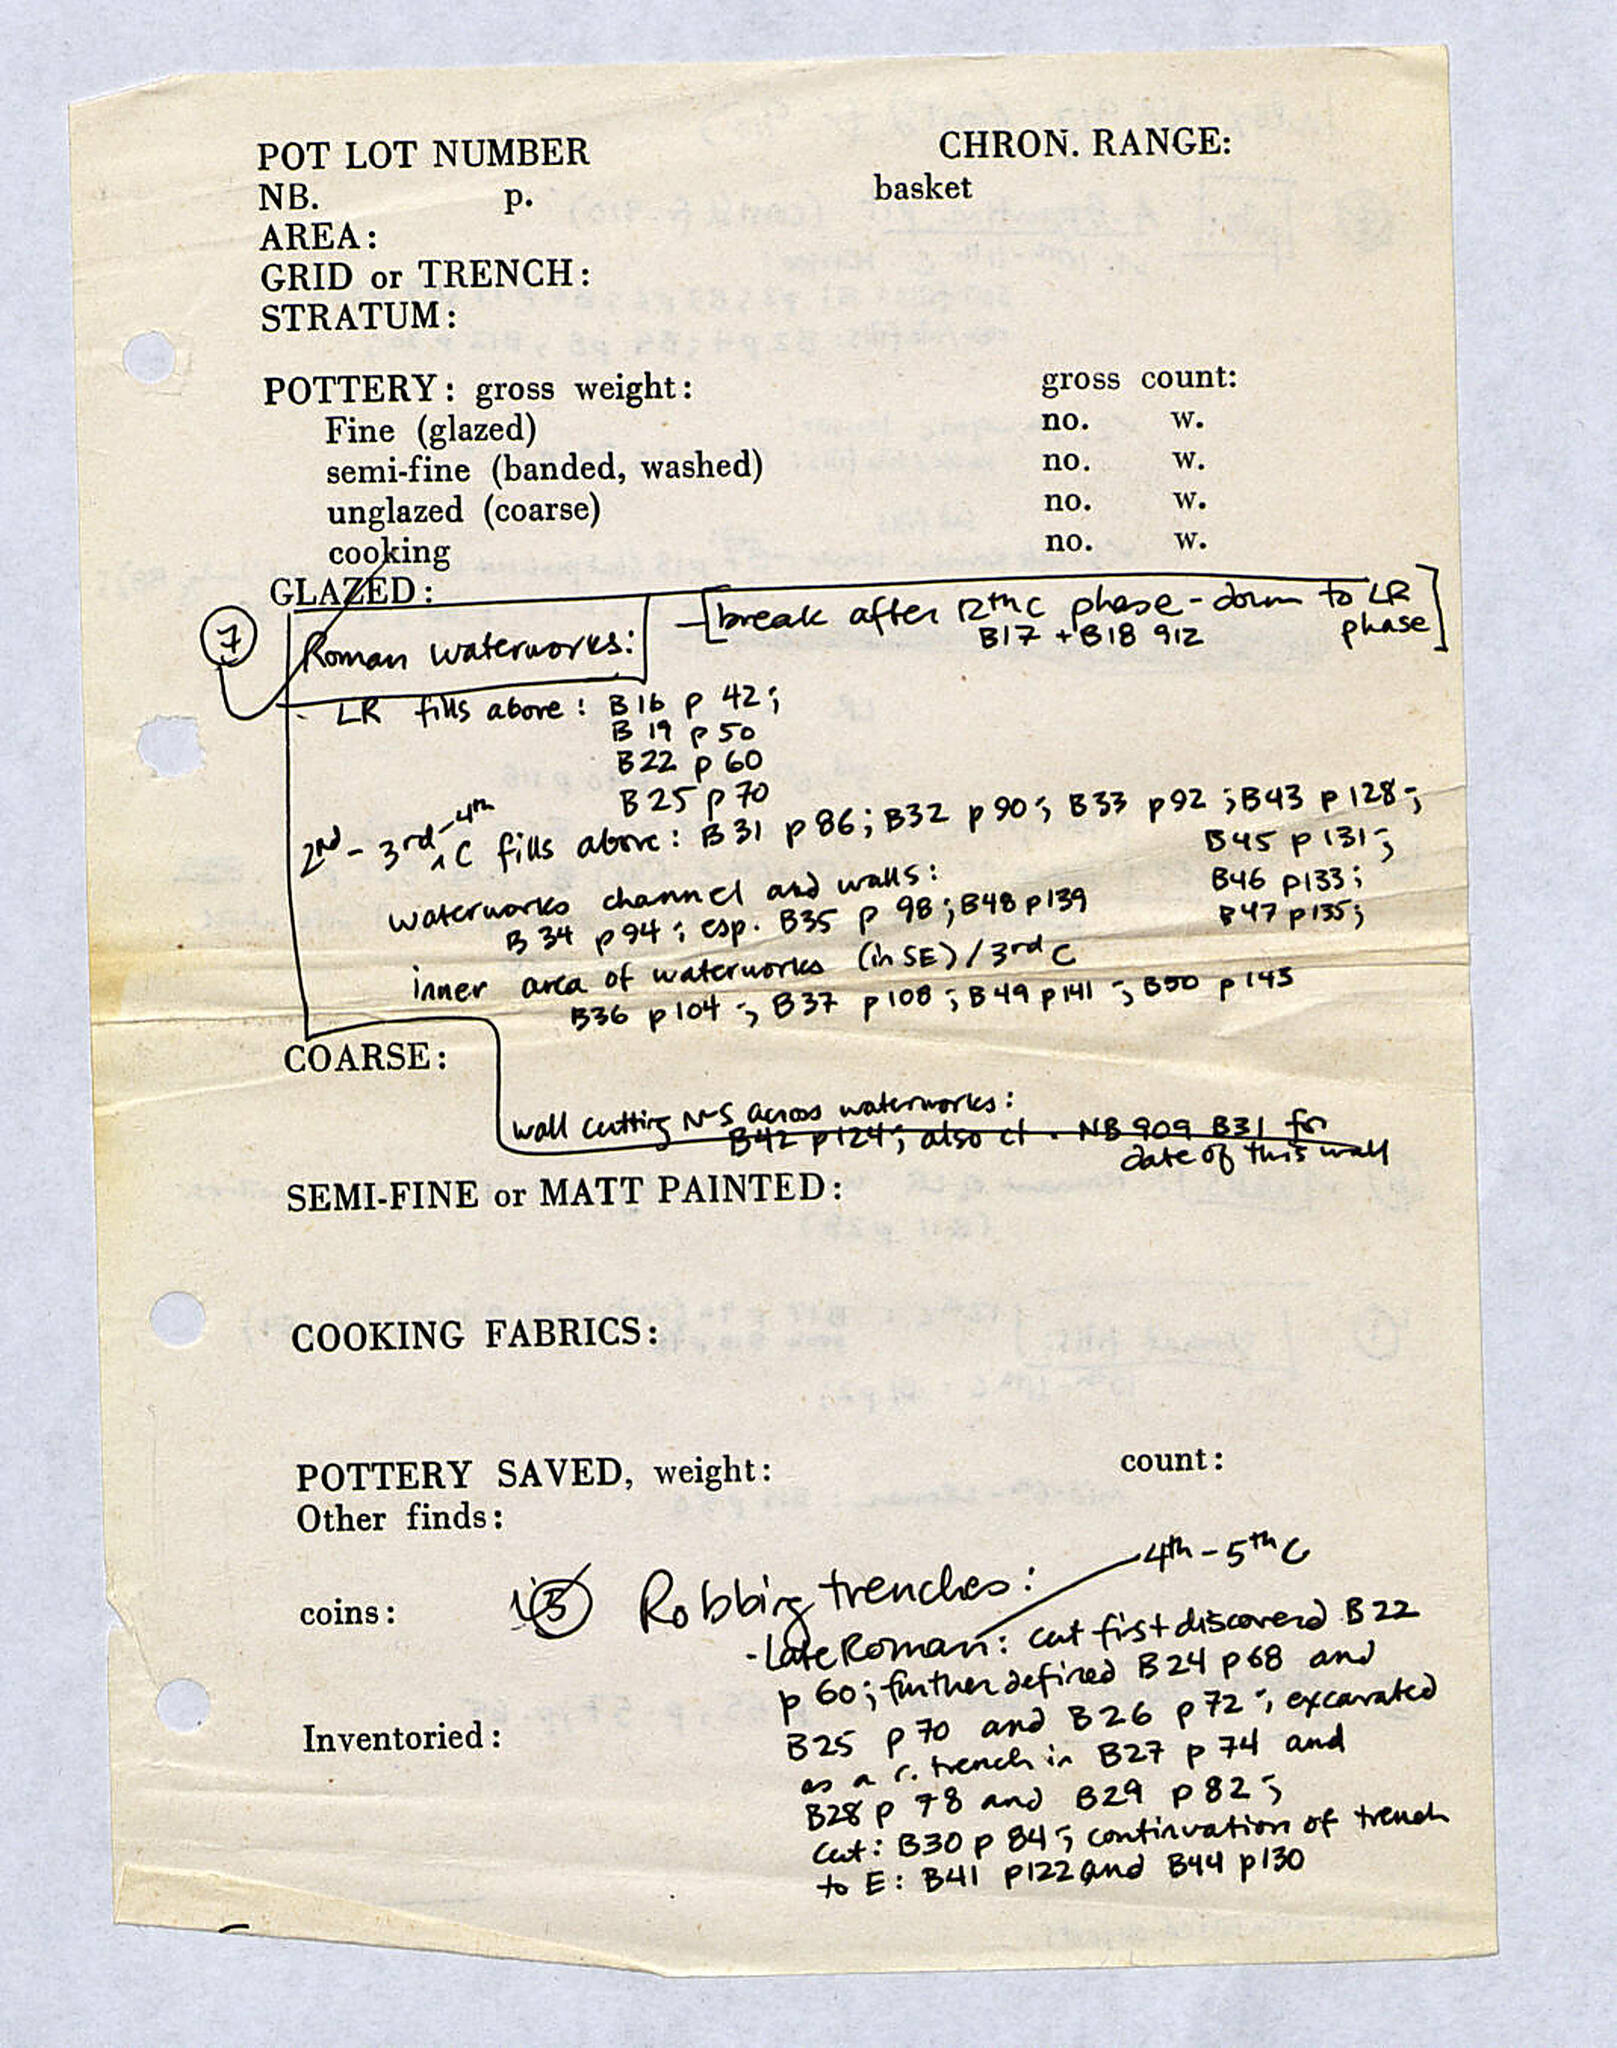 POT LOT NUMBER CHRON. RANGE:
NB. p. basket
AREA:
GRID or TRENCH:
STRATUM:
POTTERY: gross weight: gross count:
Fine (glazed) no. w.
semi-fine (banded, washed) no. w.
unglazed (coarse) no. w.
cooking no. w.
GLAZED:
[break after 12th C phase - down to LR
B17 + B18 912 phase]
7 Roman waterworks:
- LR fills above: B16 p 42;
B 19 p 50
B22 p 60
B25 p 70
2nd - 3rd -4th C fills above: B 31 p 86; B32 p 90; B33 p92; B43 p 128;
B45 p 131;
B46 p133;
B47 p135;
waterworks channel and walls:
B 34 p 94; esp. B35 p 98; B48 p139
inner area of waterworks (in SE) / 3rd C
B36 p 104; B37 p 108; B49 p 141; B50 p 143
COARSE:
wall cutting N-S across waterworks:
B42 p 124; also cf. NB 909 B31 for
date of this wall
SEMI-FINE or MATT PAINTED:
COOKING FABRICS:
POTTERY SAVED, weight: count:
Other finds:
4th - 5th C
coins: Robbing trenches:
- Late Roman: cut first discovered B22
p 60; further defined B24 p 68 and
B25 p 70 and B26 p 72; excavated
Inventoried:
as a r. trench in B27 p 74 and
B28 p 78 and B29 p 82;
cut: B30 p 84; continuation of trench
to E: B41 p122 and B44 p130